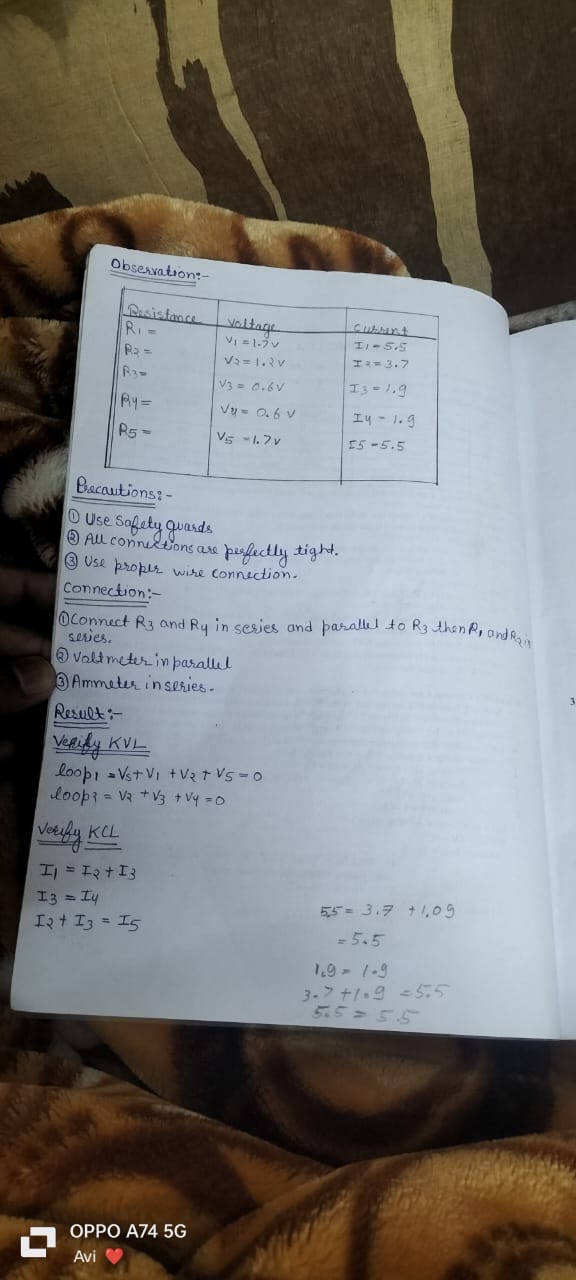 Observation:-
Resistance Voltage Current
R1 = V1 = 1.7V I1 = 5.5
R2 = V2 = 1.2V I2 = 3.7
R3 = V3 = 0.6V I3 = 1.9
R4 = V4 = 0.6 V I4 - 1.9
R5 = V5 = 1.7V I5 - 5.5
Precautions:-
① Use Safety guards
② All connections are perfectly tight.
③ Use proper wire connection.
Connection:-
① Connect R3 and R4 in series and parallel to R3 then R1 and R2 in
series.
② Voltmeter in parallel
③ Ammeter in series.
Result:-
Verify KVL
loop1 = Vs + V1 + V2 + V5 = 0
loop2 = V2 + V3 + V4 = 0
Verify KCL
I1 = I2 + I3
I3 = I4
I2 + I3 = I5
5.5 = 3.7 + 1.09
= 5.5
1.9 = 1.9
3.7 + 1.9 = 5.5
5.5 = 5.5
3
OPPO A74 5G
Avi ❤️